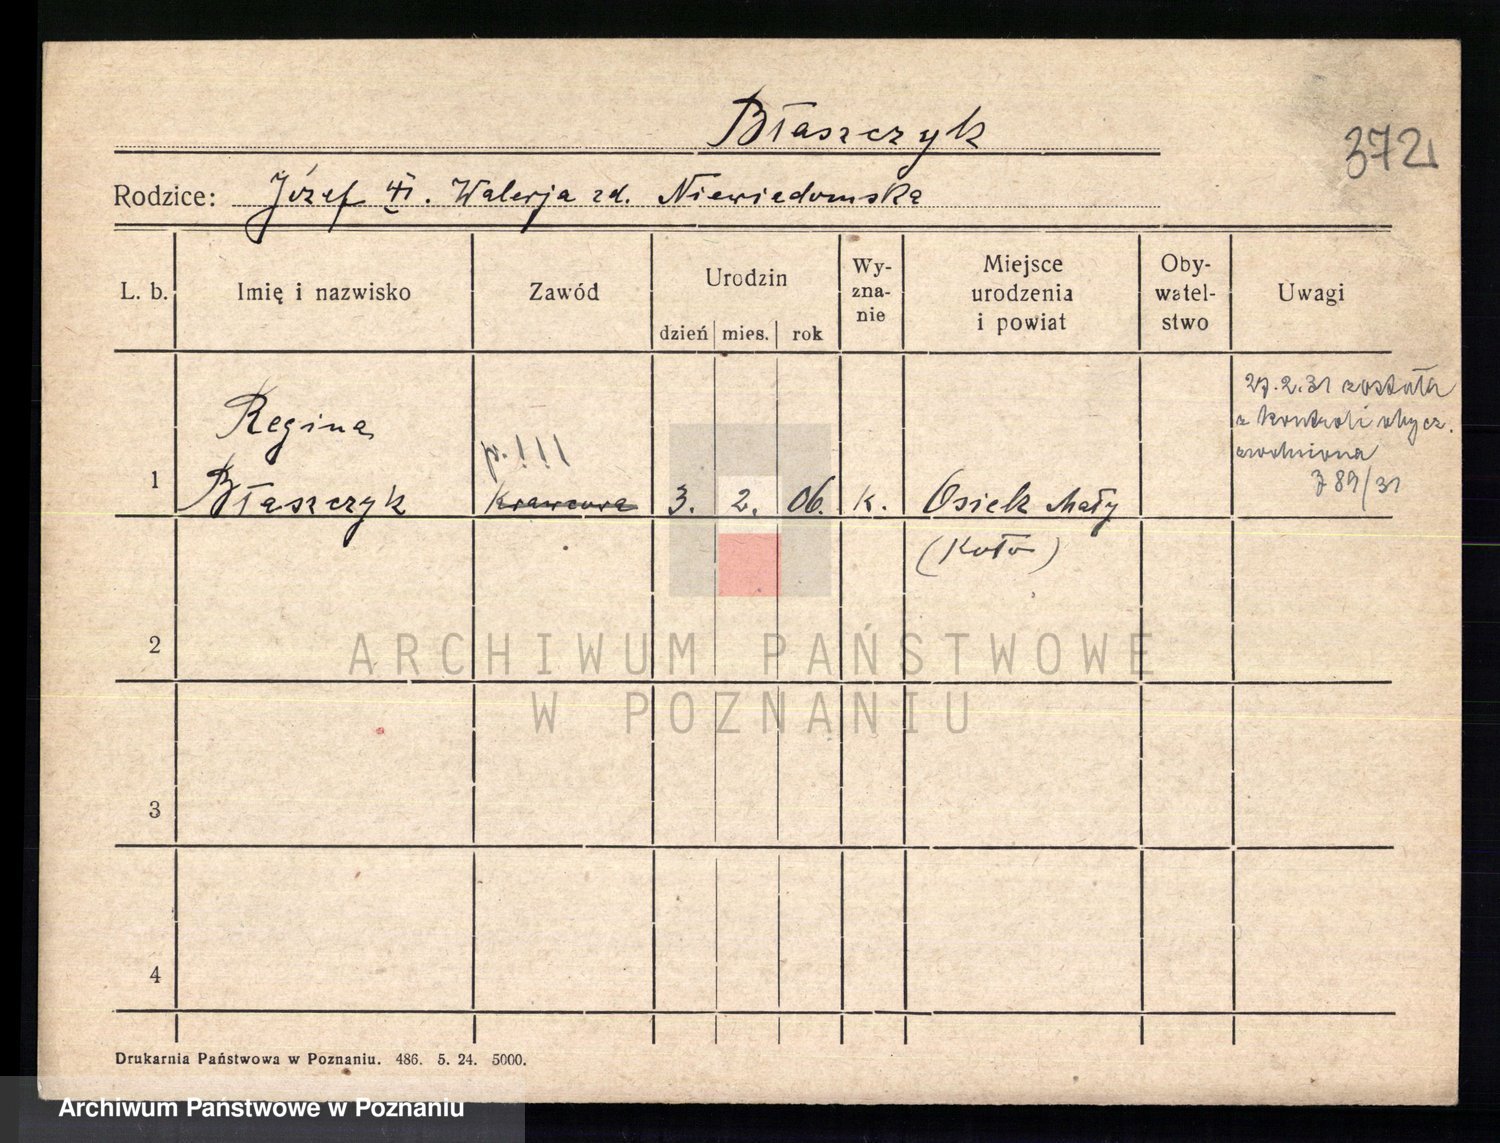 Błaszczyk
3721
Rodzice: Józef i. Walerja zd. Niewiedomska
L. b.
Imię i nazwisko
Zawód
Urodzin
dzień mies. rok
Wy-
zna-
nie
Miejsce
urodzenia
i powiat
Oby-
watel-
stwo
Uwagi
1
Regina
Błaszczyk
p.!!!
Krawcowa
3. 2. 06.
K.
Osiek Mały
(Koło)
27.2.31 została
z kontroli obycz.
zwolniona
789/31
2
3
4
ARCHIWUM PAŃSTWOWE
W POZNANIU
Drukarnia Państwowa w Poznaniu. 486. 5. 24. 5000.
Archiwum Państwowe w Poznaniu